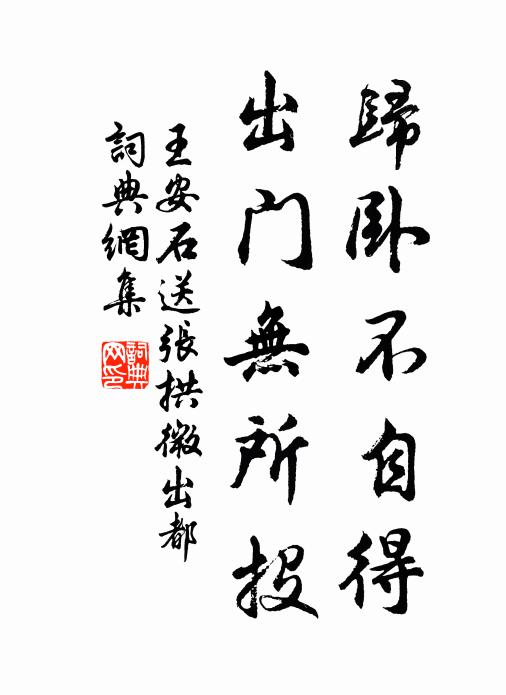 歸臥不自得
出门無所投
王安石送張拱微出都
詞典網集
詞典
网印